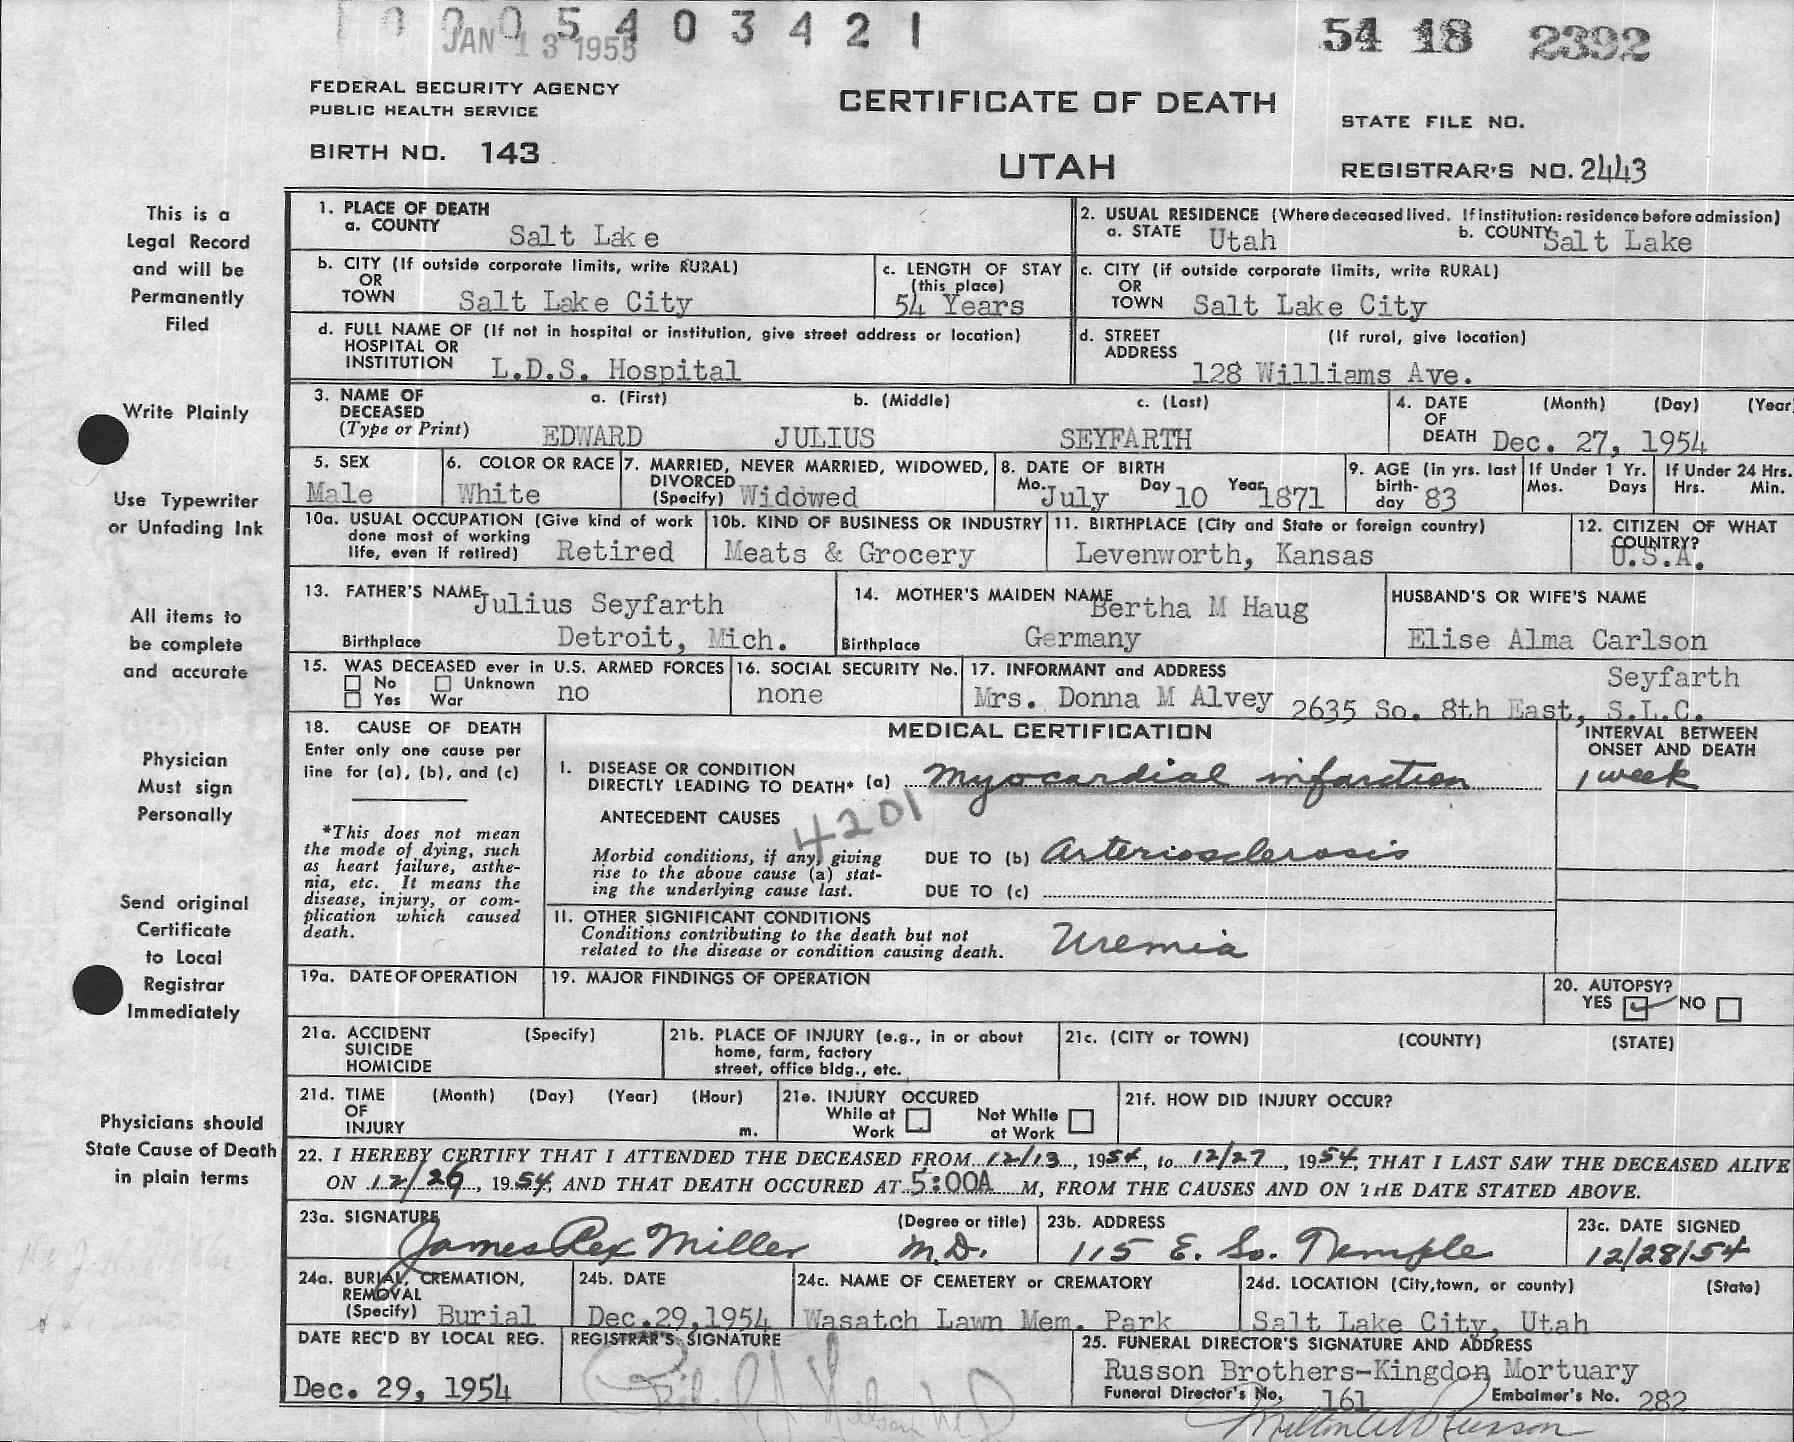 1 0 0 0 5 4 0 3 4 2 1
JAN 13 1955
54 18 2392
FEDERAL SECURITY AGENCY
PUBLIC HEALTH SERVICE
BIRTH NO. 143
CERTIFICATE OF DEATH
UTAH
STATE FILE NO.
REGISTRAR'S NO. 2443
This is a
Legal Record
and will be
Permanently
Filed
Write Plainly
Use Typewriter
or Unfading Ink
All items to
be complete
and accurate
Physician
Must sign
Personally
Send original
Certificate
to Local
Registrar
Immediately
Physicians should
State Cause of Death
in plain terms
1. PLACE OF DEATH
a. COUNTY Salt Lake
2. USUAL RESIDENCE (Where deceased lived. If institution: residence before admission)
a. STATE Utah b. COUNTY Salt Lake
b. CITY (If outside corporate limits, write RURAL)
OR
TOWN Salt Lake City
c. LENGTH OF STAY
(this place)
54 Years
c. CITY (if outside corporate limits, write RURAL)
OR
TOWN Salt Lake City
d. FULL NAME OF (If not in hospital or institution, give street address or location)
HOSPITAL OR
INSTITUTION L.D.S. Hospital
d. STREET (If rural, give location)
ADDRESS
128 Williams Ave.
3. NAME OF a. (First) b. (Middle) c. (Last)
DECEASED
(Type or Print) EDWARD JULIUS SEYFARTH
4. DATE (Month) (Day) (Year
OF
DEATH Dec. 27, 1954
5. SEX
Male
6. COLOR OR RACE
White
7. MARRIED, NEVER MARRIED, WIDOWED,
DIVORCED
(Specify) Widowed
8. DATE OF BIRTH
Mo. July Day 10 Year 1871
9. AGE (in yrs. last
birth-
day 83
If Under 1 Yr.
Mos. Days
If Under 24 Hrs.
Hrs. Min.
10a. USUAL OCCUPATION (Give kind of work
done most of working
life, even if retired) Retired
10b. KIND OF BUSINESS OR INDUSTRY
Meats & Grocery
11. BIRTHPLACE (City and State or foreign country)
Levenworth, Kansas
12. CITIZEN OF WHAT
COUNTRY?
U.S.A.
13. FATHER'S NAME Julius Seyfarth
Birthplace Detroit, Mich.
14. MOTHER'S MAIDEN NAME Bertha M Haug
Birthplace Germany
HUSBAND'S OR WIFE'S NAME
Elise Alma Carlson
Seyfarth
15. WAS DECEASED ever in U.S. ARMED FORCES
No Unknown
Yes War no
16. SOCIAL SECURITY No.
none
17. INFORMANT and ADDRESS
Mrs. Donna M Alvey 2635 So. 8th East, S.L.C.
18. CAUSE OF DEATH
Enter only one cause per
line for (a), (b), and (c)
*This does not mean
the mode of dying, such
as heart failure, asthe-
nia, etc. It means the
disease, injury, or com-
plication which caused
death.
MEDICAL CERTIFICATION
INTERVAL BETWEEN
ONSET AND DEATH
I. DISEASE OR CONDITION
DIRECTLY LEADING TO DEATH* (a) Myocardial infarction
1 week
ANTECEDENT CAUSES
4201
Morbid conditions, if any, giving
rise to the above cause (a) stat-
ing the underlying cause last.
DUE TO (b) Arteriosclerosis
DUE TO (c)
II. OTHER SIGNIFICANT CONDITIONS
Conditions contributing to the death but not
related to the disease or condition causing death.
Uremia
19a. DATE OF OPERATION
19. MAJOR FINDINGS OF OPERATION
20. AUTOPSY?
YES ✓ NO
21a. ACCIDENT (Specify)
SUICIDE
HOMICIDE
21b. PLACE OF INJURY (e.g., in or about
home, farm, factory
street, office bldg., etc.
21c. (CITY or TOWN) (COUNTY) (STATE)
21d. TIME (Month) (Day) (Year) (Hour)
OF
INJURY m.
21e. INJURY OCCURED
While at Not While
Work at Work
21f. HOW DID INJURY OCCUR?
22. I HEREBY CERTIFY THAT I ATTENDED THE DECEASED FROM 12/13, 1954, to 12/27, 1954, THAT I LAST SAW THE DECEASED ALIVE
ON 12/26, 1954, AND THAT DEATH OCCURED AT 5:00A M, FROM THE CAUSES AND ON THE DATE STATED ABOVE.
23a. SIGNATURE (Degree or title)
James Rex Miller M.D.
23b. ADDRESS
115 E. So. Temple
23c. DATE SIGNED
12/28/54
24a. BURIAL, CREMATION,
REMOVAL
(Specify) Burial
24b. DATE
Dec.29,1954
24c. NAME OF CEMETERY or CREMATORY
Wasatch Lawn Mem. Park
24d. LOCATION (City,town, or county) (State)
Salt Lake City, Utah
DATE REC'D BY LOCAL REG.
Dec. 29, 1954
REGISTRAR'S SIGNATURE
25. FUNERAL DIRECTOR'S SIGNATURE AND ADDRESS
Russon Brothers-Kingdon Mortuary
Funeral Director's No. 161 Embalmer's No. 282